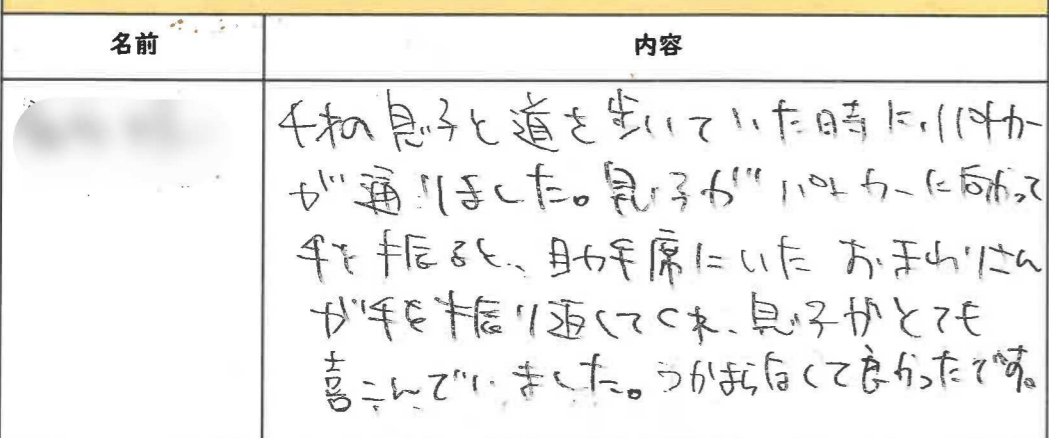 名前
内容
4才の息子と道を歩いていた時に、パトカー
が通りました。息子がパトカーに向かって
手を振ると、助手席にいたおまわりさん
が手を振り返してくれ、息子がとても
喜こんでいました。つかまらなくて良かったです。